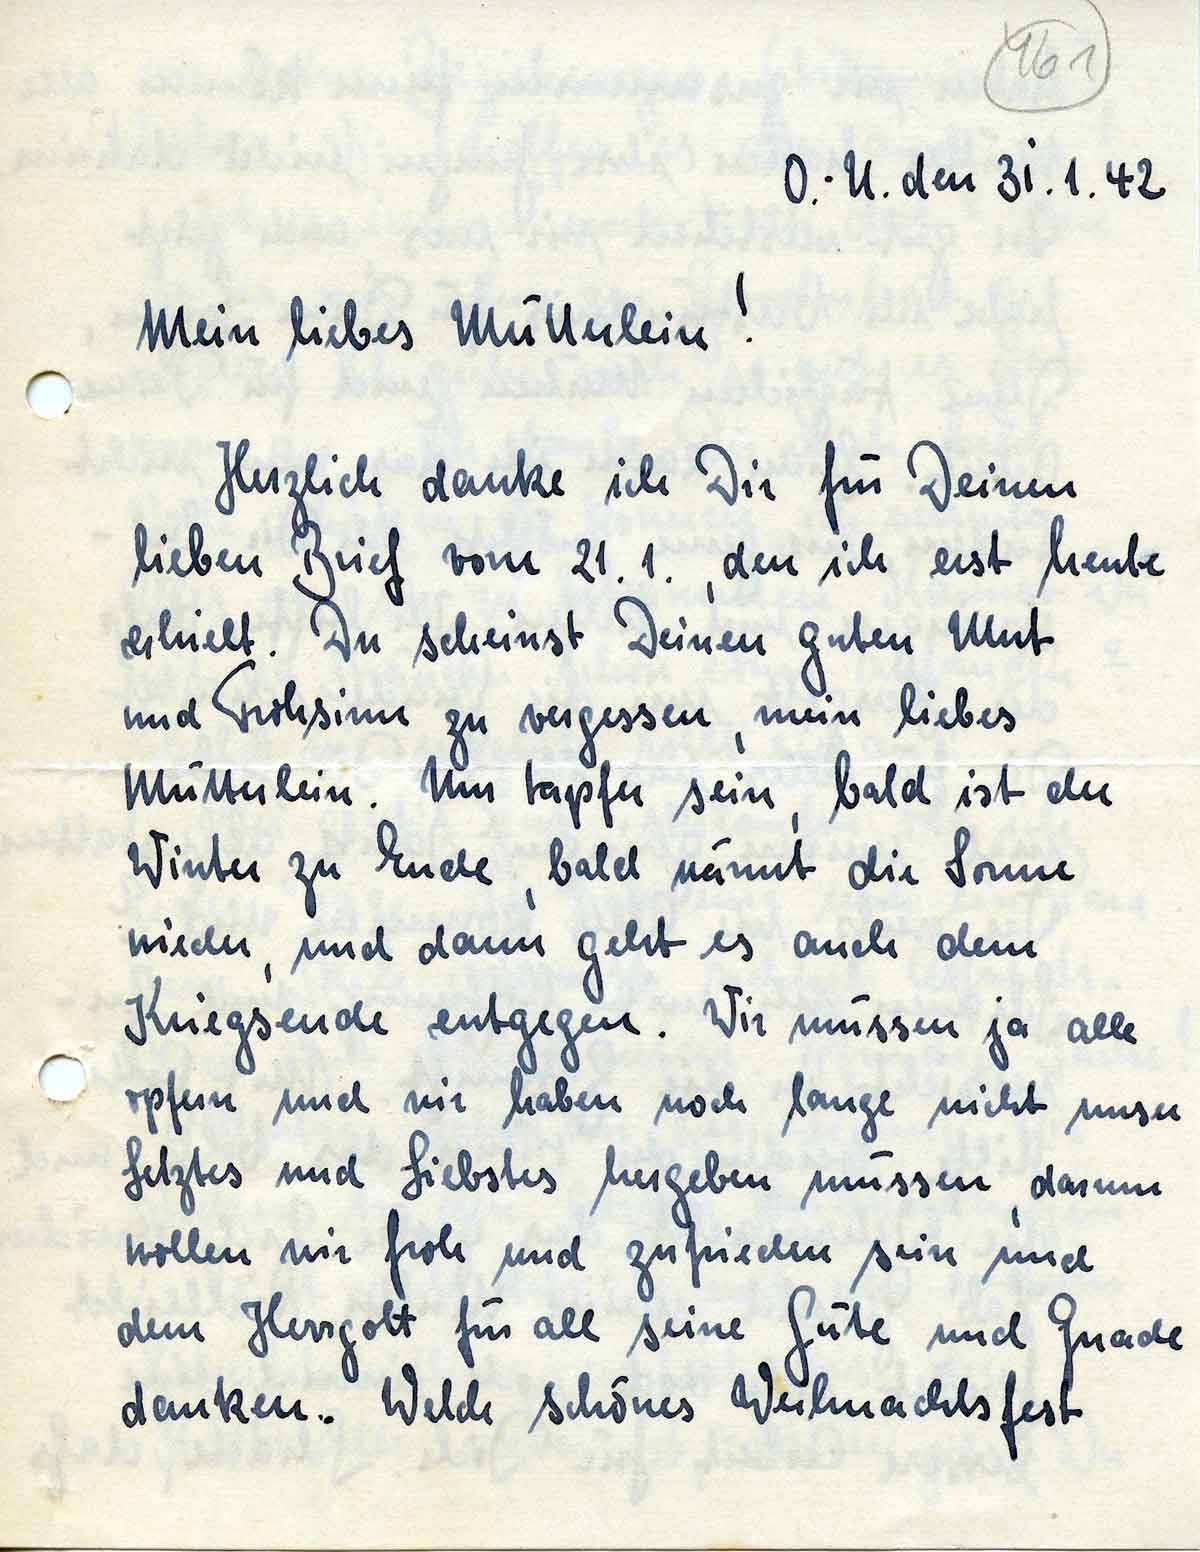 161
O.-U. den 31.1.42
Mein liebes Mütterlein!
Herzlich danke ich Dir für Deinen
lieben Brief vom 21.1., den ich erst heute
erhielt. Du scheinst Deinen guten Mut
und Frohsinn zu vergessen, mein liebes
Mütterlein. Nur tapfer sein, bald ist der
Winter zu Ende, bald wärmt die Sonne
wieder, und dann geht es auch dem
Kriegsende entgegen. Wir müssen ja alle
opfern und wir haben noch lange nicht unser
Letztes und Liebstes hergeben müssen, darum
wollen wir froh und zufrieden sein und
dem Herrgott für all seine Güte und Gnade
danken. Welch schönes Weihnachtsfest